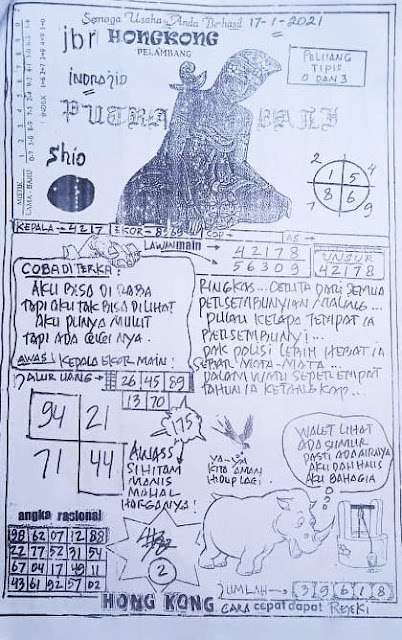 Semoga Usaha Anda Berhasil 17-1-2021
jbr HONGKONG
PELAMBANG
INDRAJID
PELUANG
TIPIS
0 DAN 3
PUTRA BALI
Shio
MISTIK
LAMA - BARU
2 4
1 5
8 6
7 9
KEPALA → 4217
EKOR → 8369
COP
AS
LAWAN main →
42178
56309
UNDUR
42178
COBA DI TERKA:
AKU BISA DI RABA
TAPI AKU TAK BISA DI LIHAT
AKU PUNYA MULUT
TAPI ADA GIGI NYA.
AWAS! KEPALA EKOR MAIN!
RINGKAS... CERITA DARI SEMUA
PERSEMBUNYIAN MALING...
PULAU KELAPA TEMPAT IA
BERSEMBUNYI...
PAK POLISI LEBIH HEBAT IA
SEBAR MATA-MATA...
DALAM WAKTU SEPEREMPAT
TAHUN IA KETANGKAP...
JALUR UANG →
26 45 89
13 70
175
94 21
71 44
AWASS
SI HITAM
MANIS
MAHAL
HARGANYA!
YA-YA
KITA AMAN
HIDUP LAGI.
WALET LIHAT
ADA SUMUR
PASTI ADA AIRNYA
AKU DAH HAUS
AKU BAHAGIA
angka rasional
98 62 07 12 88
22 77 52 31 54
67 04 17 49 11
43 61 92 57 02
2
JUMLAH → 39618
HONG KONG CARA cepat dapat REJEKI